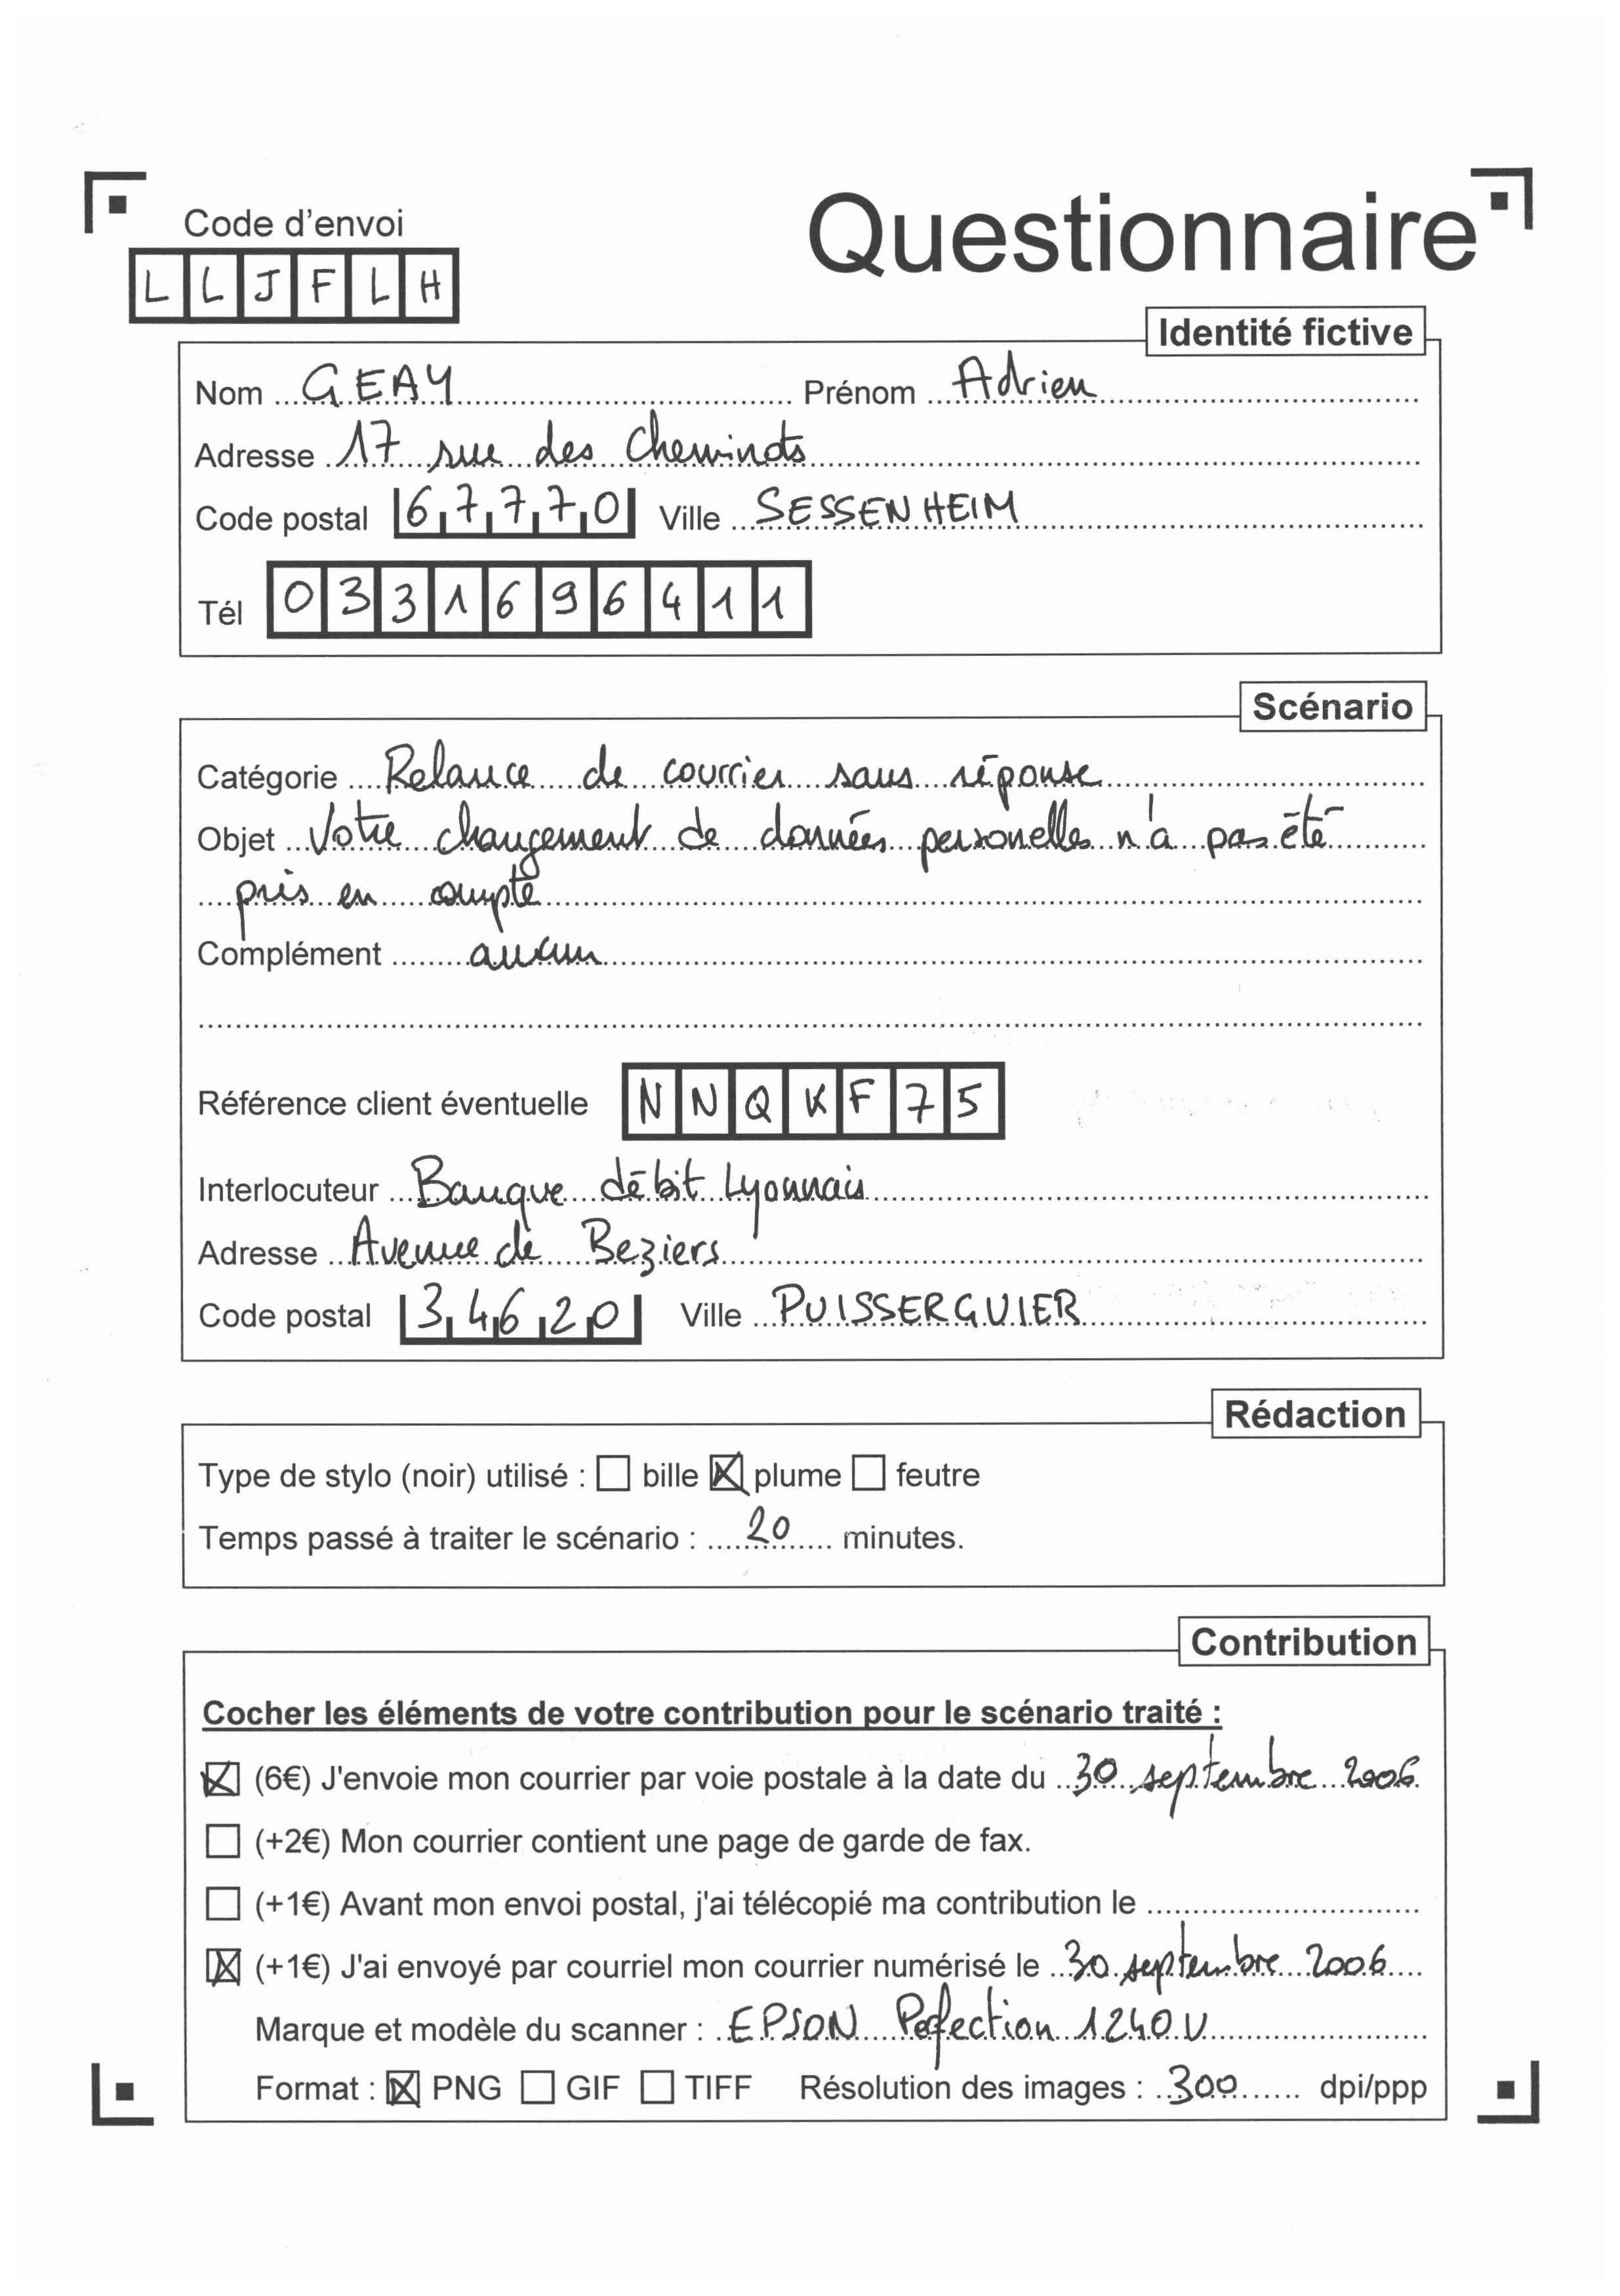 Code d'envoi
Questionnaire
L L J F L H
Identité fictive
Nom GEAY Prénom Adrien
Adresse 17 rue des Cheminots
Code postal 67770 Ville SESSENHEIM
Tél 0331696411
Scénario
Catégorie Relance de courrier sans réponse
Objet Votre changement de données personelles n'a pas été
pris en compte
Complément aucun
Référence client éventuelle NNQKF75
Interlocuteur Banque débit Lyonnais
Adresse Avenue de Beziers
Code postal 34620 Ville PUISSERGUIER
Rédaction
Type de stylo (noir) utilisé : bille plume feutre
Temps passé à traiter le scénario : 20 minutes.
Contribution
Cocher les éléments de votre contribution pour le scénario traité :
(6€) J'envoie mon courrier par voie postale à la date du 30 septembre 2006
(+2€) Mon courrier contient une page de garde de fax.
(+1€) Avant mon envoi postal, j'ai télécopié ma contribution le
(+1€) J'ai envoyé par courriel mon courrier numérisé le 30 septembre 2006
Marque et modèle du scanner : EPSON Pefection 1240U
Format : PNG GIF TIFF Résolution des images : 300 dpi/ppp